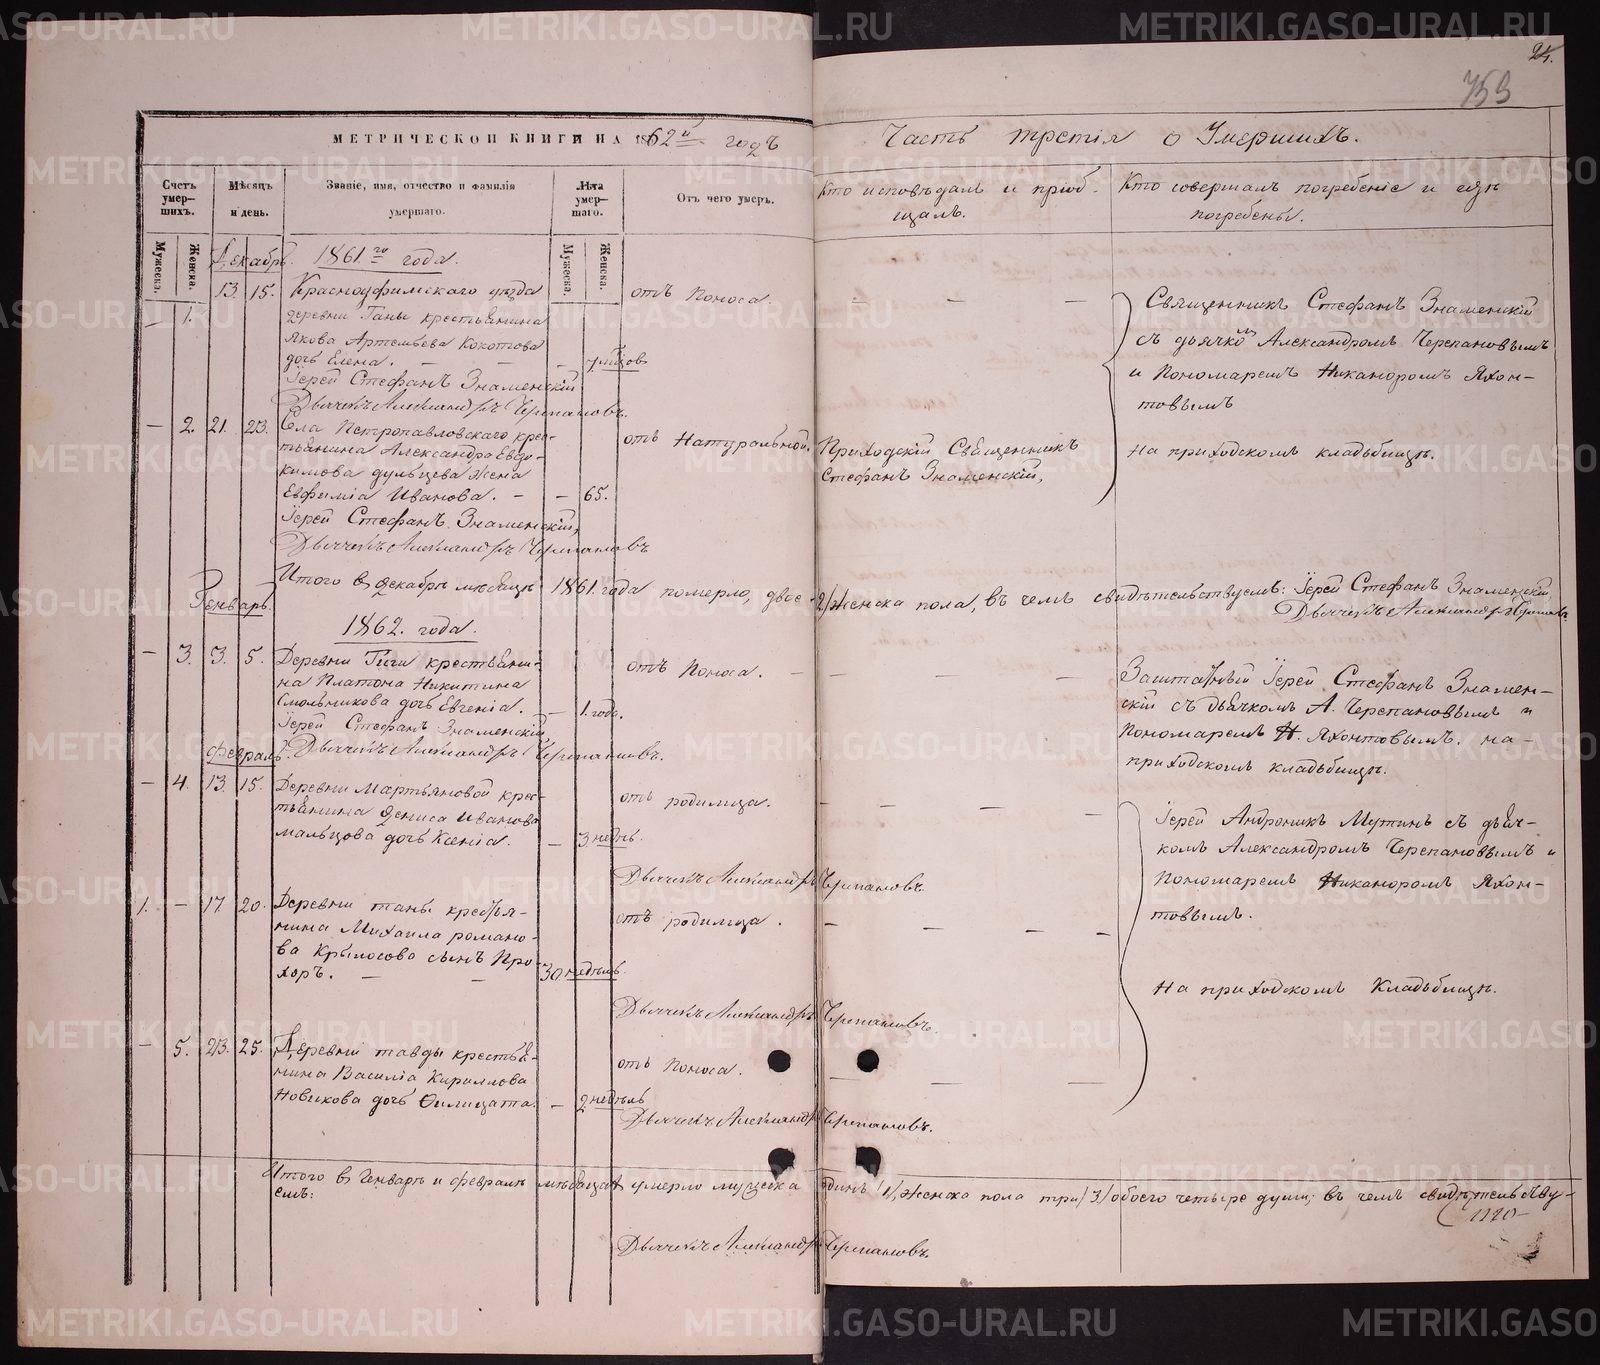 24.
759
МЕТРИЧЕСКОЙ КНИГИ НА 1862й годъ
Часть третія о Умершихъ.
Счетъ умер-шихъ.
Мѣсяцъ и день.
Званіе, имя, отчество и фамилія умершаго.
Лѣта умер-шаго.
Отъ чего умеръ.
Кто исповѣдалъ и пріоб-
щалъ.
Кто совершалъ погребеніе и гдѣ
погребены.
Мужеска.
Женска.
Мужеска.
Женска.
Декабрь. 1861.го года.
– 1. 13. 15. Красноуфимскаго уѣзда
деревни Таны крестьянина
Якова Артемьева Кокотова
дочь Елена. – – –
отъ Поноса.
Іерей Стефанъ Знаменскій
Дьячекъ Александръ Черепановъ.
Священникъ Стефанъ Знаменскій
съ дьячкомъ Александромъ Черепановымъ
и Пономаремъ Никаноромъ Яхон-
товымъ
На приходскомъ кладьбищѣ.
– 2. 21. 23. Села Петропавловскаго крес-
тьянина Александра Евдо-
кимова дульцева жена
Евфимія Иванова. – – 65.
отъ Натуральной.
Приходскій Священникъ
Стефанъ Знаменскій,
Іерей Стефанъ Знаменскій,
Дьячекъ Александръ Черепановъ
Итого въ декабрѣ мѣсяцѣ 1861. года померло, двое 2/женска пола, въ чемъ свидѣтельствуемъ: Іерей Стефанъ Знаменскій,
Дьячекъ Александръ Черепановъ.
Генварь.
1862. года.
– 3. 3. 5. Деревни крестьяни-
на Платона Никитина
Смольникова дочь Евгенія. – 1. года.
отъ Поноса. – – – –
Іерей Стефанъ Знаменскій,
Дьячекъ Александръ Черепановъ.
Заштатный Іерей Стефанъ Знамен-
скій съ дьячкомъ А. Черепановымъ и
Пономаремъ Н. Яхонтовымъ. на-
приходскомъ кладьбищѣ.
февраль.
– 4. 13. 15. Деревни Мартьяновой крес-
тьянина Дениса Иванова
мальцова дочь Ксенія. – 3 недѣль.
отъ родимца. – – – –
Дьячекъ Александръ Черепановъ.
Іерей Андроникъ Мутинъ съ дьяч-
комъ Александромъ Черепановымъ и
Пономаремъ Никаноромъ Яхон-
товымъ.
На приходскомъ Кладьбищѣ.
1. – 17. 20. Деревни таны крестья-
нина Михаила романо-
ва Крылосова сынъ Про-
хоръ. – – 30 недѣль.
отъ родимца. – – – –
Дьячекъ Александръ Черепановъ.
– 5. 23. 25. Деревни тавды крестья-
нина Василія Кириллова
Новикова дочь Филицата. – 2 недѣль
отъ Поноса. – – –
Дьячекъ Александръ Черепановъ.
Итого въ Генварѣ и февралѣ мѣсяцахъ умерло мужеска одинъ /1/, женска пола три /3/ обоего четыре души; въ чемъ свидѣтельству-
емъ:
Дьячекъ Александръ Черепановъ.
METRIKI.GASO-URAL.RU